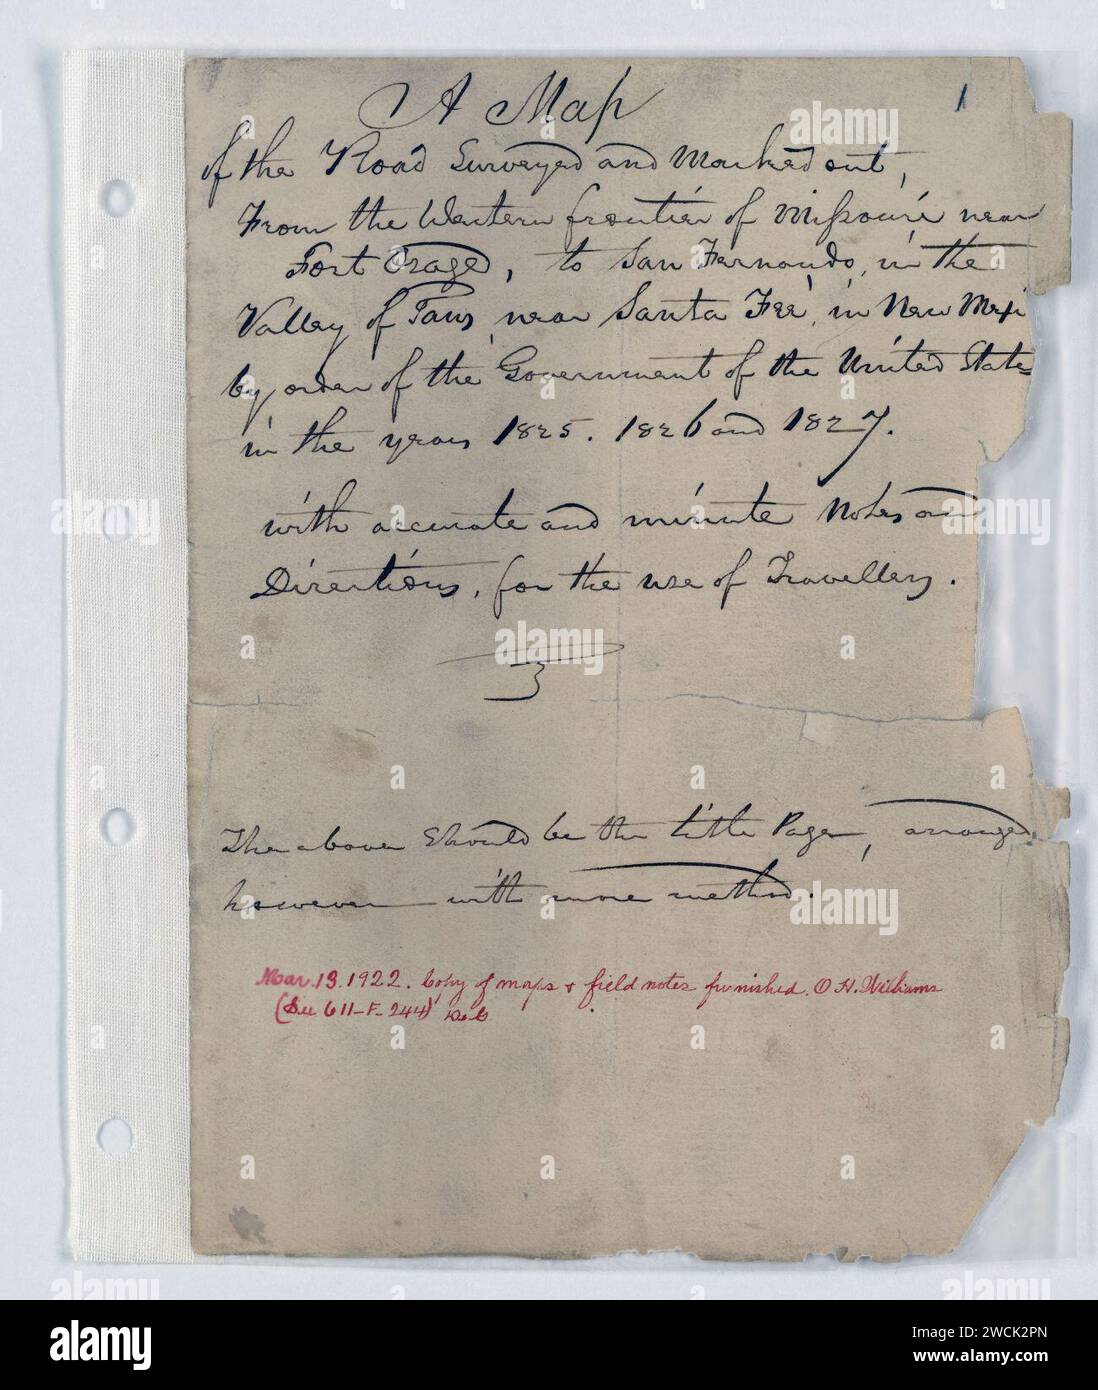 1
A Map
of the Road Surveyed and Marked out,
From the Western frontier of Missouri near
Fort Osage, to San Fernando, in the
Valley of Taus, near Santa Feé, in New Mexi
by order of the Government of the United States
in the years 1825. 1826 and 1827.
with accurate and minute Notes and
Directions, for the use of Travellers.
The above Should be the title Page, arranged
however with more method.
Mar. 13. 1922. Copy of maps & field notes furnished. O H. Williams
(See 611-F-244)
alamy
Image ID: 2WCK2PN
www.alamy.com